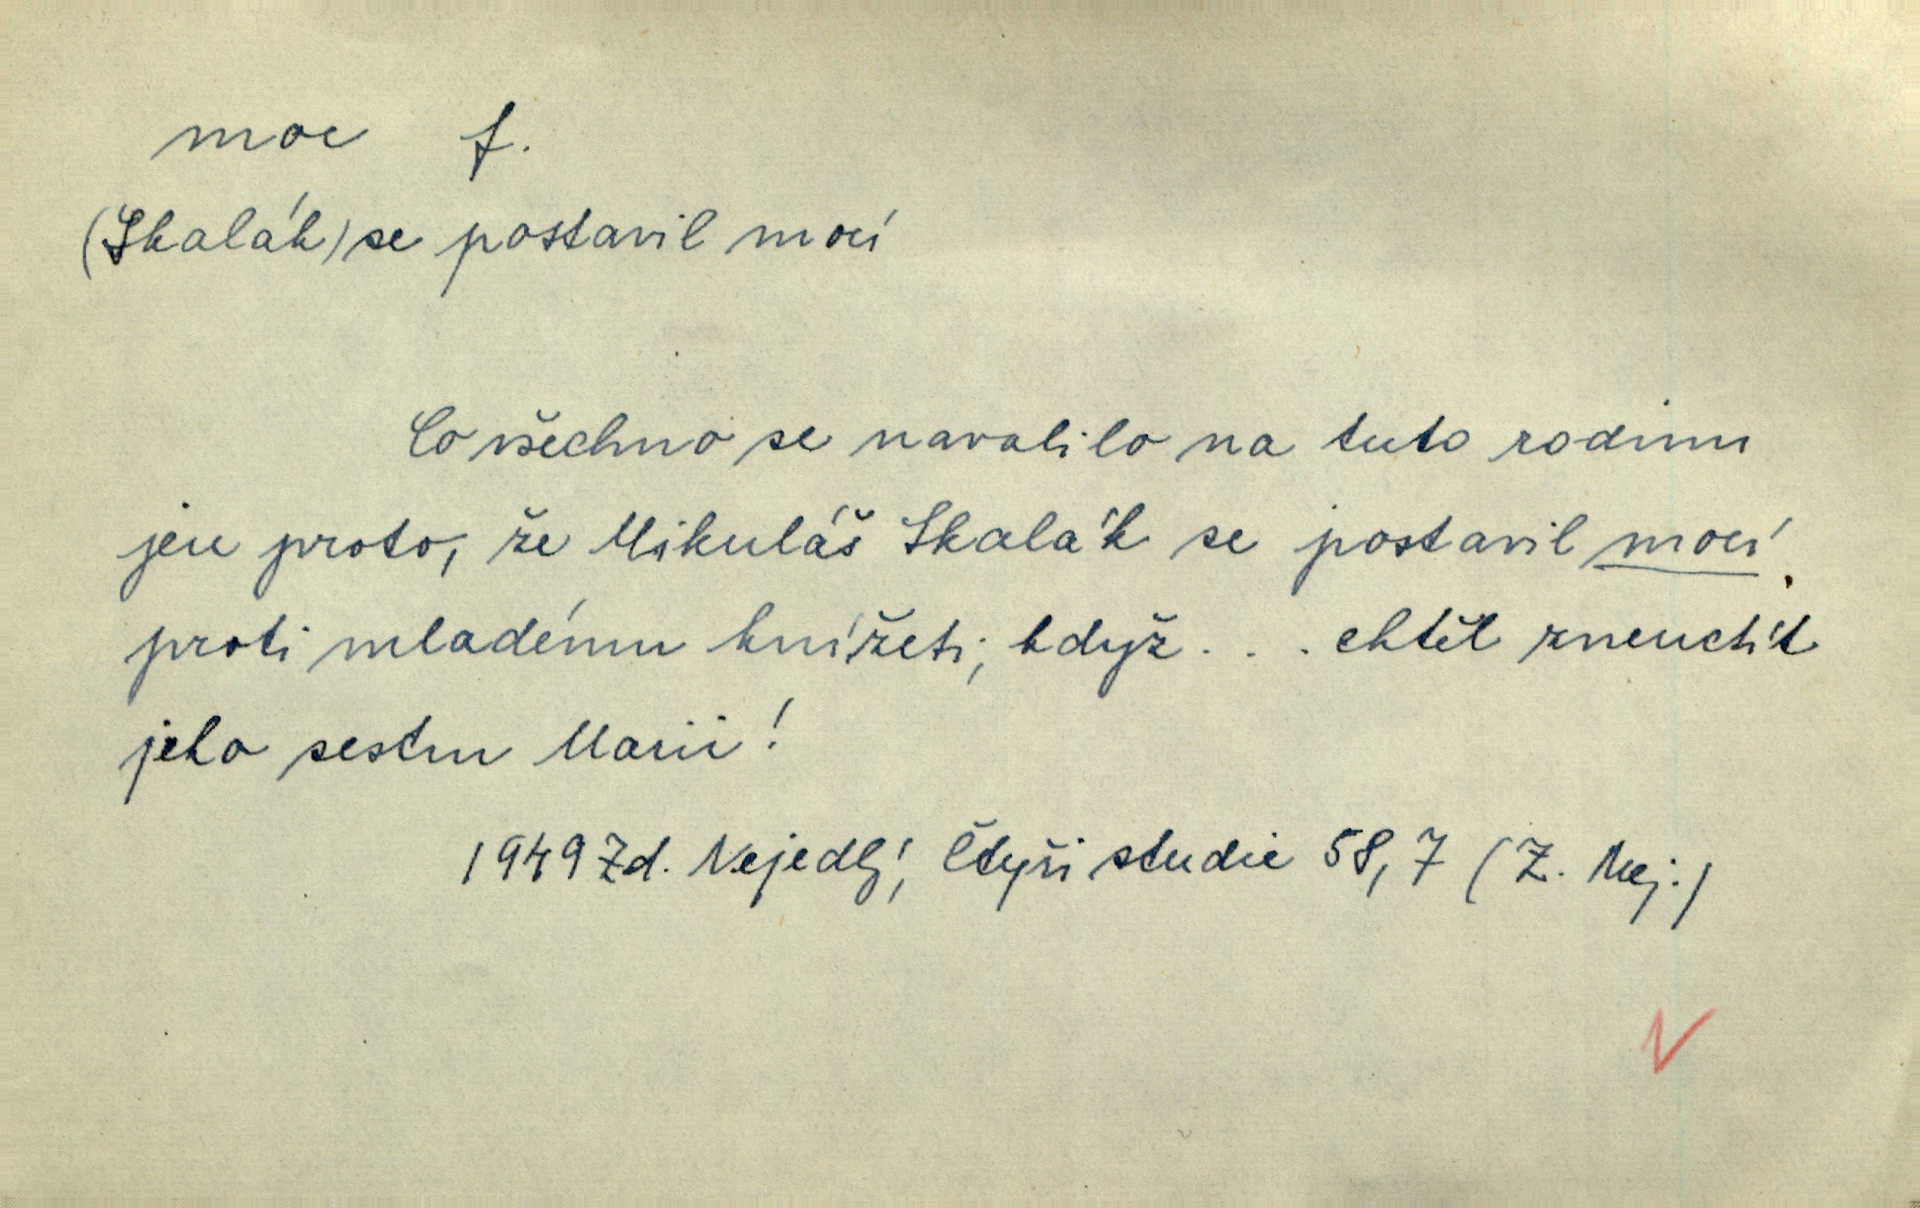 moc f.
(Skalák) se postavil mocí
Co všechno se navalilo na tuto rodinu
jen proto, že Mikuláš Skalák se postavil mocí
proti mladému knížeti, když . . . chtěl zneuctít
jeho sestru Marii!
1949 Zd. Nejedlý, Čtyři studie 58, 7 (Z. Nej.)